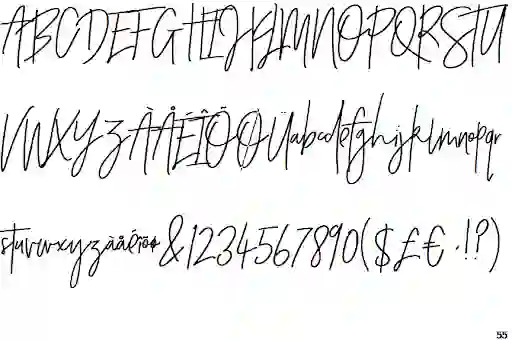 ABCDEFGHIJKLMNOPQRSTU
VWXYZÀÅÉÎÕØUabcdefghijklmnopqr
stuvwxyzàåéîõø&1234567890($£€.!?)
55